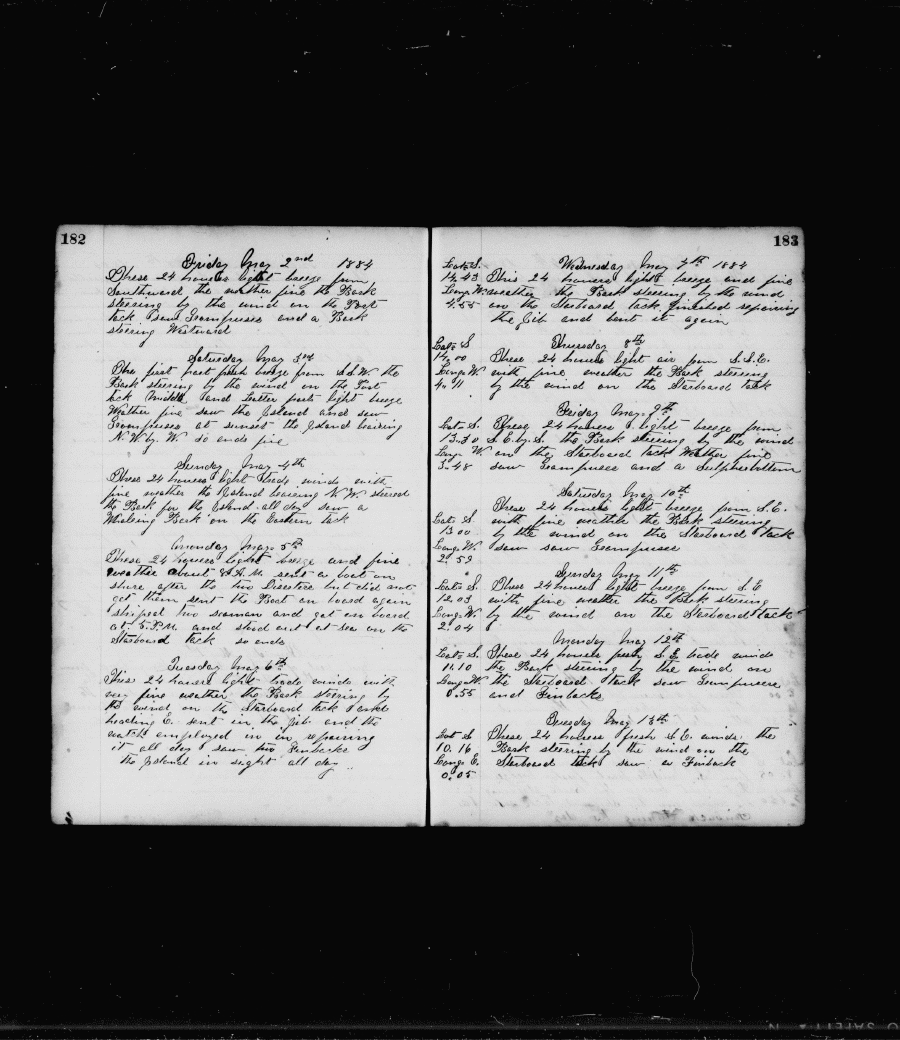 182
Friday May 2nd 1884
These 24 houers light breeze from
Southward the weather fine the Bark
steering by the wind on the Port
tack saw Grampuses and a Bark
steering Westward
Saturday May 3rd
The first part fresh breeze from S.S.W. the
Bark steering by the wind on the Port
tack Middle and Latter parts light breeze
Wether fine saw the Island and saw
Grampuses at sunset the Island bearing
N.W. by. W. so ends fine
Sunday May 4th
These 24 houers light trade winds with
fine weather the Island bearing N.W. steered
the Bark for the Island all day saw a
Whaleing Bark on the Eastern tack
Monday May 5th
These 24 houers light breeze and fine
weather about 8 A.M. sent a boat on
shore after the two but did not
get them sent the Boat on board again
shiped two seaman and got on board
at 5. P.M. and stood out at sea on the
Starboard tack so ends
Tuesday May 6th
This 24 houers light trade winds with
very fine weather the Bark steering by
the wind on the Starboard tack
heading E. sent in the Jib and the
watch employed in in repairing
it all day saw two Finbacks
the Island in sight all day
183
Wednesday May 7th 1884
Lat. S. 14.43 This 24 houers light breeze and fine
Long. W. weather the Bark steering by the wind
4.55 on the Starboard tack finished repairing
the Jib and bent it again
Thursday 8th
Lat. S 14.00 These 24 houers light air from S.S.E.
Long. W. with fine weather the Bark steering
4.11 by the wind on the Starboard tack
Friday May 9th
Lat. S. These 24 houers light breeze from
13.30 S.E. by. S. the Bark steering by the wind
Long. W. on the Starboard tack Wether fine
3.48 saw Grampuses and a Sulpherbottom
Saturday May 10th
These 24 houers light breeze from S.E.
Lat. S. with fine weather the Bark steering
13.00 by the wind on the Starboard tack
Long. W. saw saw Grampuses
2.59
Sunday May 11th
Lat. S. These 24 houers light breeze from S.E
12.03 with fine weather the Bark steering
Long. W. by the wind on the Starboard tack
2.04
Monday May 12th
Lat. S. These 24 houers fresh S.E. trade winds
11.10 the Bark steering by the wind on
Long. W. the Starboard tack saw Grampuses
0.55 and Finbacks
Tuesday May 13th
Lat S These 24 houers fresh S.E. winds the
10.16 Bark steering by the wind on the
Long. E. Starboard tack saw a Finback
0.05